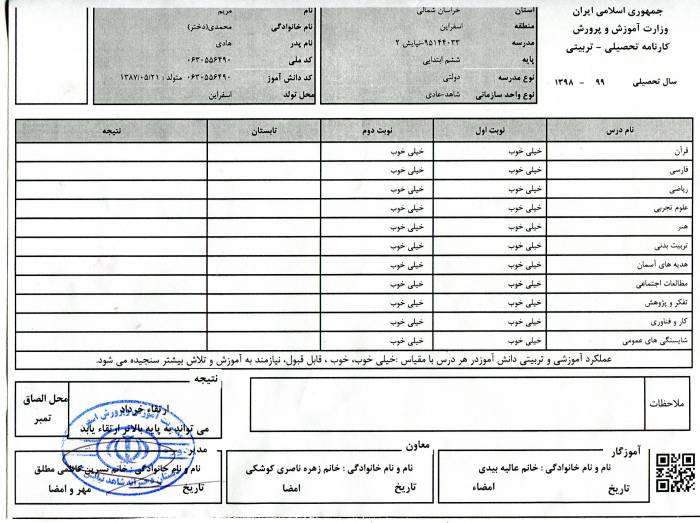 جمهوری اسلامی ایران
وزارت آموزش و پرورش
کارنامه تحصیلی - تربیتی
سال تحصیلی ۹۹ - ۱۳۹۸
استان خراسان شمالی
منطقه اسفراین
مدرسه ۹۵۱۴۴۰۳۳-نیایش ۲
پایه ششم ابتدایی
نوع مدرسه دولتی
نوع واحد سازمانی شاهد-عادی
نام مریم
نام خانوادگی محمدی(دختر)
نام پدر هادی
کد ملی ۰۶۳۰۵۵۶۴۹۰
کد دانش آموز ۰۶۳۰۵۵۶۴۹۰ متولد : ۱۳۸۷/۰۵/۲۱
محل تولد اسفراین
نام درس نوبت اول نوبت دوم تابستان نتیجه
قرآن خیلی خوب خیلی خوب
فارسی خیلی خوب خیلی خوب
ریاضی خیلی خوب خیلی خوب
علوم تجربی خیلی خوب خیلی خوب
هنر خیلی خوب خیلی خوب
تربیت بدنی خیلی خوب خیلی خوب
هدیه های آسمان خیلی خوب خیلی خوب
مطالعات اجتماعی خیلی خوب خیلی خوب
تفکر و پژوهش خیلی خوب خیلی خوب
کار و فناوری خیلی خوب خیلی خوب
شایستگی های عمومی خیلی خوب خیلی خوب
عملکرد آموزشی و تربیتی دانش آموزدر هر درس با مقیاس :خیلی خوب، خوب ، قابل قبول، نیازمند به آموزش و تلاش بیشتر سنجیده می شود.
ملاحظات
نتیجه
ارتقاء خرداد
می تواند به پایه بالاتر ارتقاء یابد
محل الصاق
تمبر
آموزگار
نام و نام خانوادگی : خانم عالیه بیدی
تاریخ امضاء
معاون
نام و نام خانوادگی : خانم زهره ناصری کوشکی
تاریخ امضا
مدیر
نام و نام خانوادگی : خانم نسرین کاظمی مطلق
تاریخ مهر و امضا